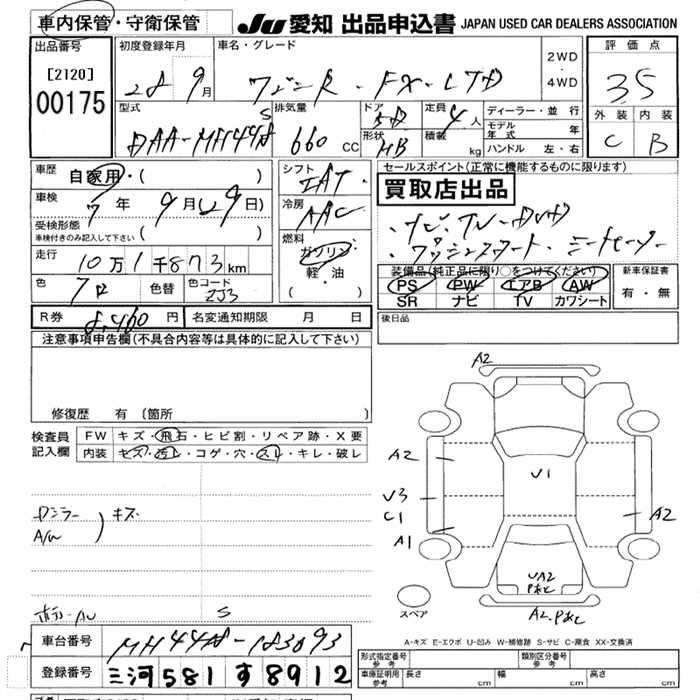 車内保管・守衛保管 JU 愛知 出品申込書 JAPAN USED CAR DEALERS ASSOCIATION
出品番号 初度登録年月 車名・グレード 2WD・4WD 評価点
[2120] 28 9月 ワゴンR FX-LTD 3.5
00175 型式 排気量 ドア 5D 定員 4人 ディーラー・並行 外装 内装
DAA-MH44S 660 CC 形状 HB 積載 kg モデル年式 年 C B
ハンドル 左・右
車歴 自家用・( ) シフト IAT セールスポイント(正常に機能するものに限ります)
車検 7年 9月(29日) 冷房 AAC 買取店出品
受検形態 ・ナビ・TV・DVD
車検付きのみ記入して下さい ( ) 燃料 ・プッシュスタート・シートヒーター
走行 10万1千873km ガソリン
色 クロ 色替 色コード ZJ3 軽・油 装備品(純正品に限り○をつけてください) 新車保証書
( ) PS PW エアB AW 有・無
SR ナビ TV カワシート
R券 8,460円 名変通知期限 月 日 後日品
注意事項申告欄(不具合内容等は具体的に記入して下さい)
A2
修復歴 有(箇所 )
検査員 FW キズ・飛石・ヒビ割・リペア跡・X要
記入欄 内装 キズ・汚レ・コゲ・穴・スレ・キレ・破レ
A2
U1
U3
C1 A2
Dミラー キズ
A/W A1
UA2
Pあと
スペア A2.Pあと
A-キズ E-エクボ U-凹み W-補修跡 S-サビ C-腐食 XX-交換済
車台番号 MH44S-183093 形式指定番号 参考 類別区分番号 参考
登録番号 三河581す8912 車庫証明用 参考 長さ cm 幅 cm 高さ cm